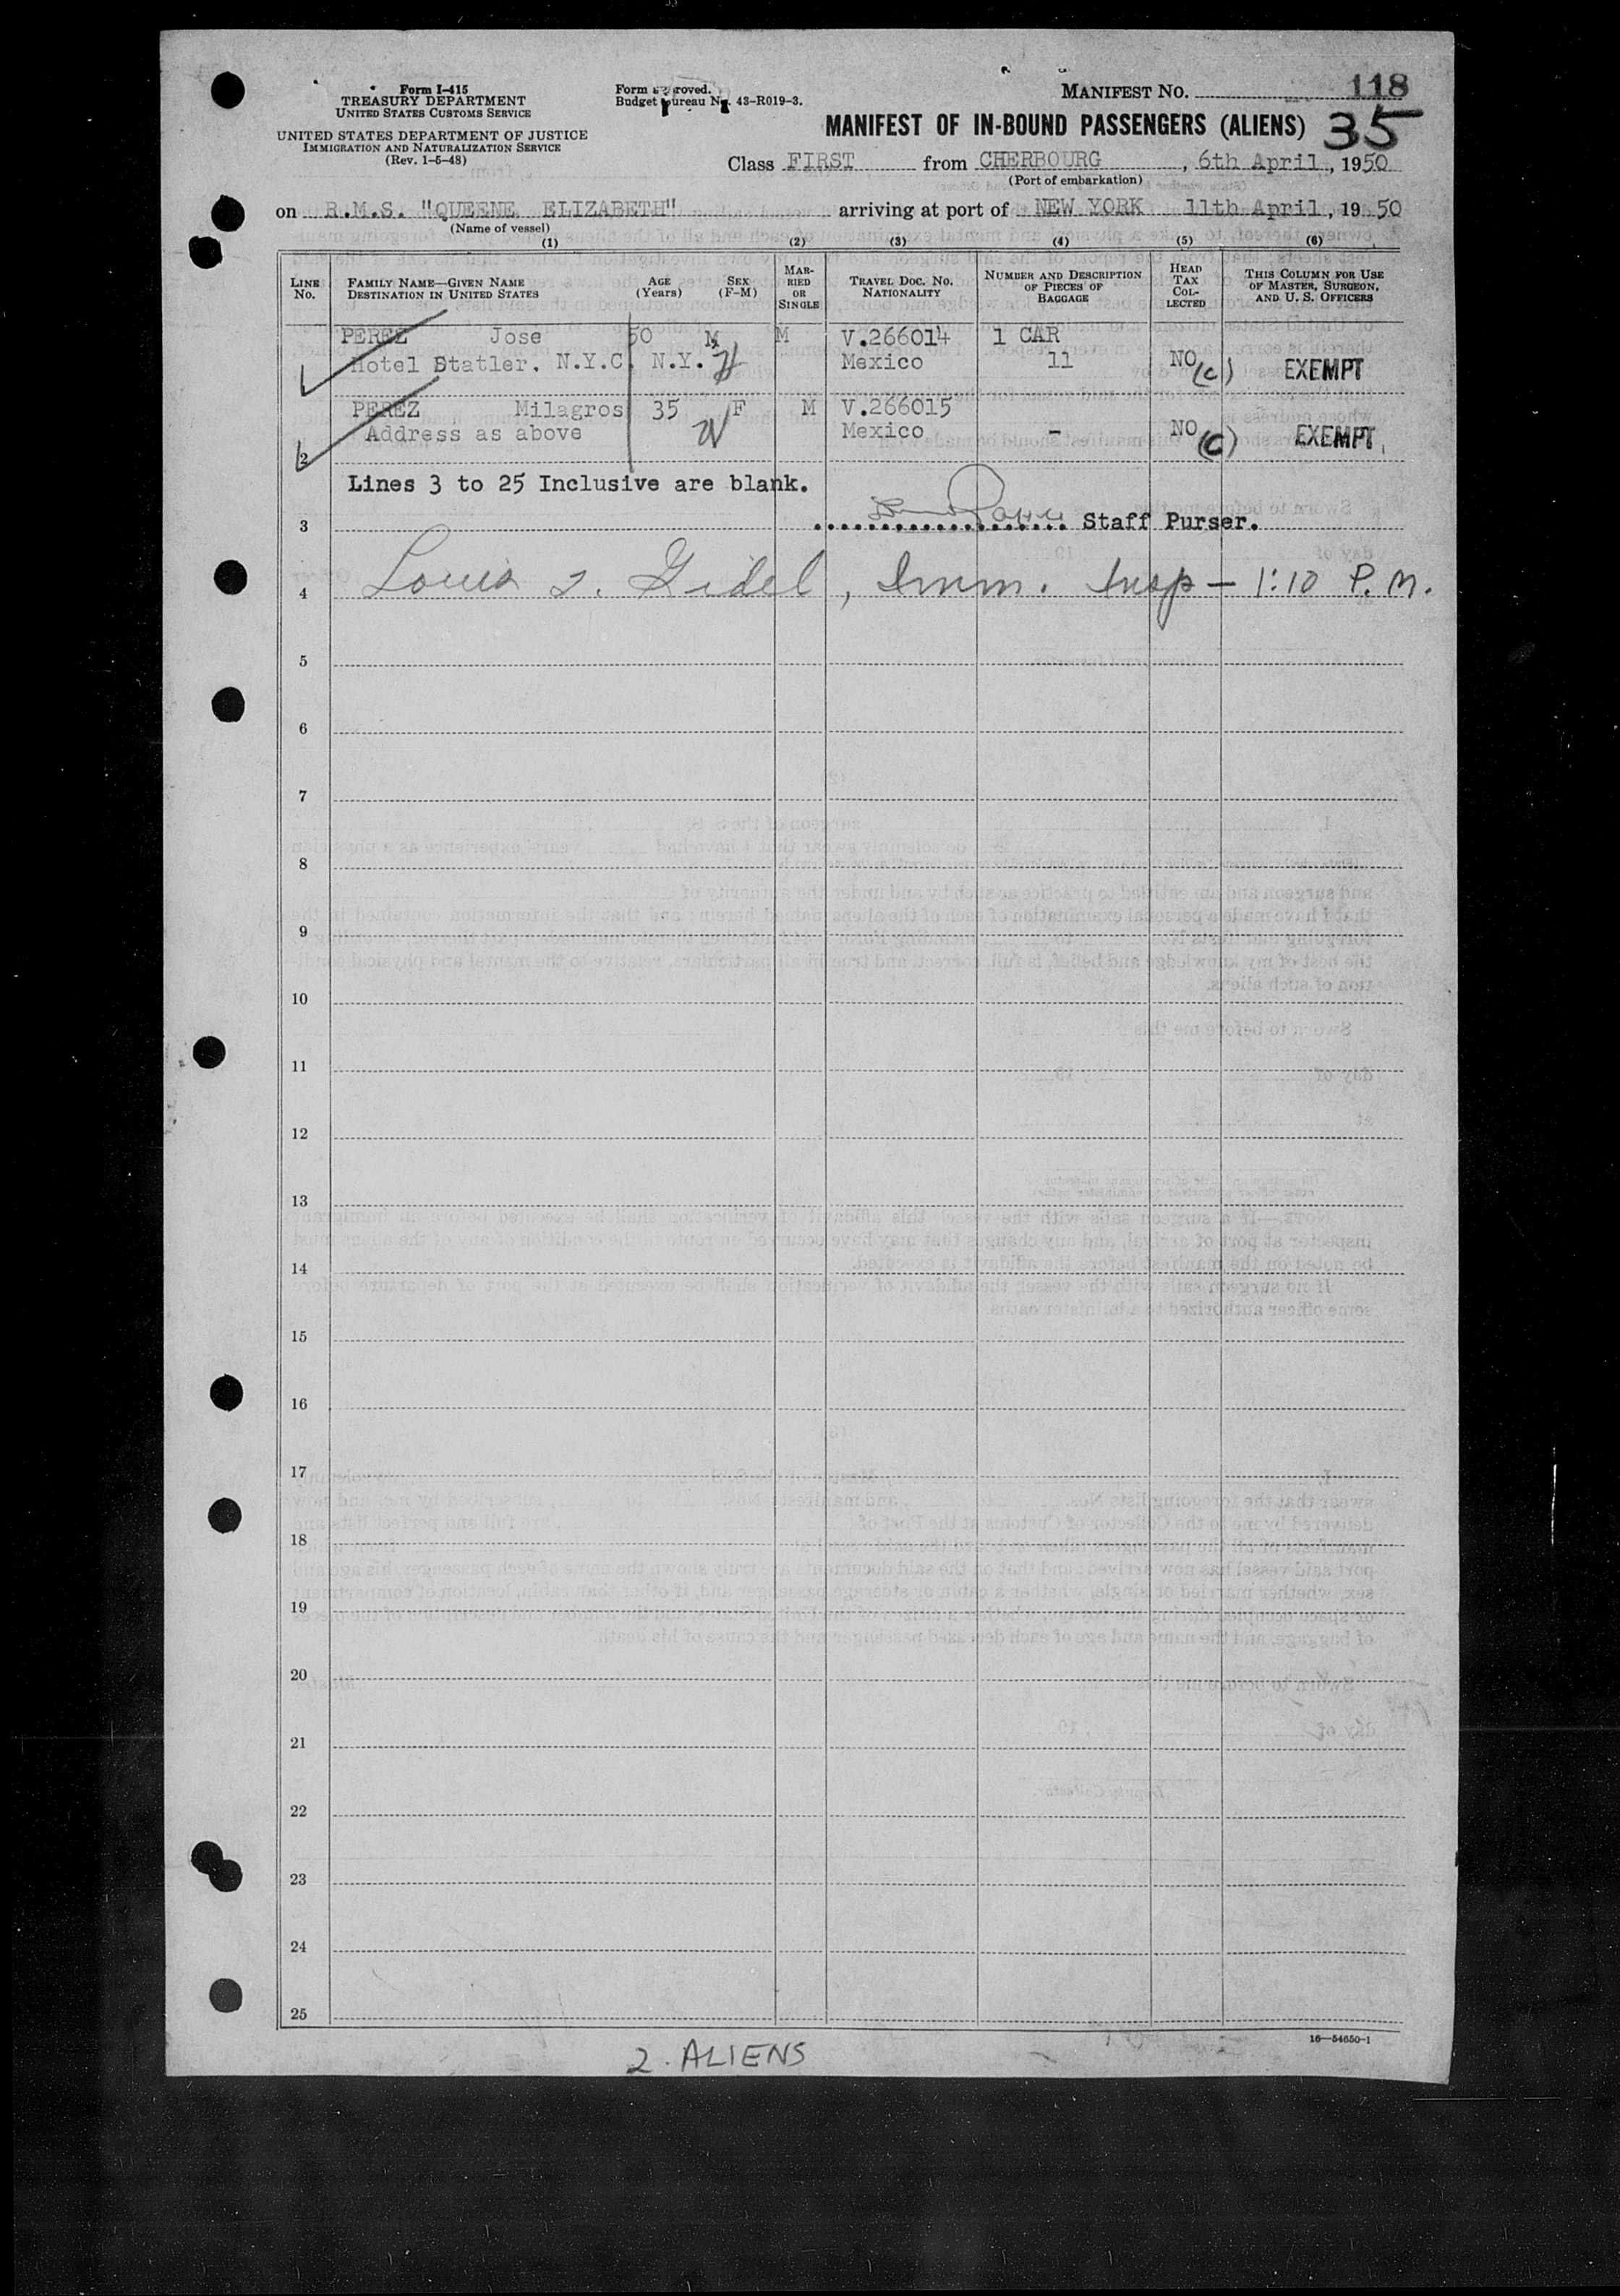 Form I-415
TREASURY DEPARTMENT
UNITED STATES CUSTOMS SERVICE
UNITED STATES DEPARTMENT OF JUSTICE
IMMIGRATION AND NATURALIZATION SERVICE
(Rev. 1-5-48)
Form approved.
Budget Bureau No. 43-R019-3.
MANIFEST NO. 118
MANIFEST OF IN-BOUND PASSENGERS (ALIENS) 35
Class FIRST from CHERBOURG, 6th April, 1950
(Port of embarkation)
on R.M.S. "QUEENE ELIZABETH" arriving at port of NEW YORK 11th April, 1950
(Name of vessel)
(1) (2) (3) (4) (5) (6)
LINE No. FAMILY NAME—GIVEN NAME DESTINATION IN UNITED STATES AGE (Years) SEX (F-M) MARRIED OR SINGLE TRAVEL DOC. NO. NATIONALITY NUMBER AND DESCRIPTION OF PIECES OF BAGGAGE HEAD TAX COLLECTED THIS COLUMN FOR USE OF MASTER, SURGEON, AND U. S. OFFICERS
PEREZ Jose 50 M M V.266014 1 CAR
Hotel Statler, N.Y.C. N.Y. Mexico 11 NO (c) EXEMPT
PEREZ Milagros 35 F M V.266015
Address as above Mexico - NO (C) EXEMPT
2
Lines 3 to 25 Inclusive are blank.
3 Staff Purser.
4 Louis Gidel, Imm. Insp — 1:10 P.M.
5
6
7
8
9
10
11
12
13
14
15
16
17
18
19
20
21
22
23
24
25
16—54650-1
2. ALIENS